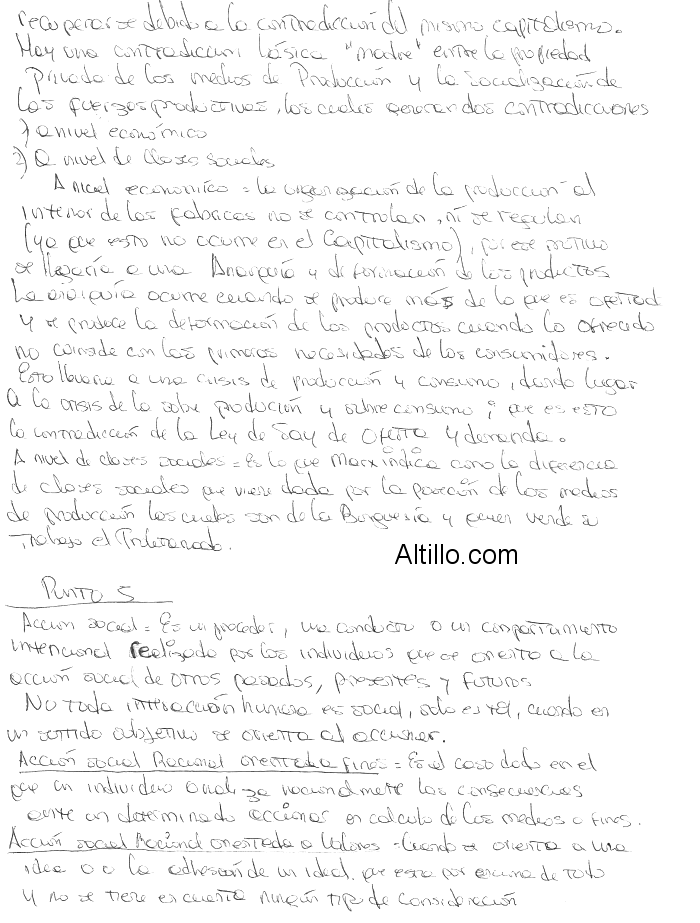 recuperarse debido a la contradicción del mismo capitalismo.
Hay una contradiccion básica "madre" entre la propiedad
privada de los medios de Producción y la socialización de
las fuerzas productivas, los cuales generan dos contradicciones
1) a nivel económico
2) a nivel de clases sociales
A nivel economico = la organización de la produccion al
interior de las fabricas no se controlan, ni se regulan
(ya que esto no ocurre en el Capitalismo), por ese motivo
se llegaría a una Anarquía y deformación de los productos
La anarquía ocurre cuando se produce más de lo que es
y se produce la deformación de los productos cuando lo ofrecido
no coinside con las primeras necesidades de los consumidores.
Esto llevaria a una crisis de producción y consumo, dando lugar
a la crisis de la sobre produción y subreconsumo; que es esto
la contradicción de la Ley de Say de Oferta y demanda.
A nivel de clases sociales = Es lo que Marx indica como la diferencia
de clases sociales que viene dada por la posesión de los medios
de producción los cuales son de la Burguesía y quien vende su
trabajo el Proletariado.
Altillo.com
PUNTO 5
Acción social = Es un proceder, una conducta o un comportamiento
intencional realizado por los individuos que se orienta a la
acción social de otros pasados, presentes y futuros
No toda interacción humana es social, solo es tal, cuando en
un sentido subjetivo se orienta al accionar.
Acción social Racional orientada a fines = Es el caso dado en el
que un individuo analiza racionalmente las consecuencias
ante un determinado accionar en calculo de los medios o fines.
Acción social Racional orientada a Valores = Cuando se orienta a una
idea o a la adhesión de un ideal que esta por encima de todo
y no se tiene en cuenta ningún tipo de consideración